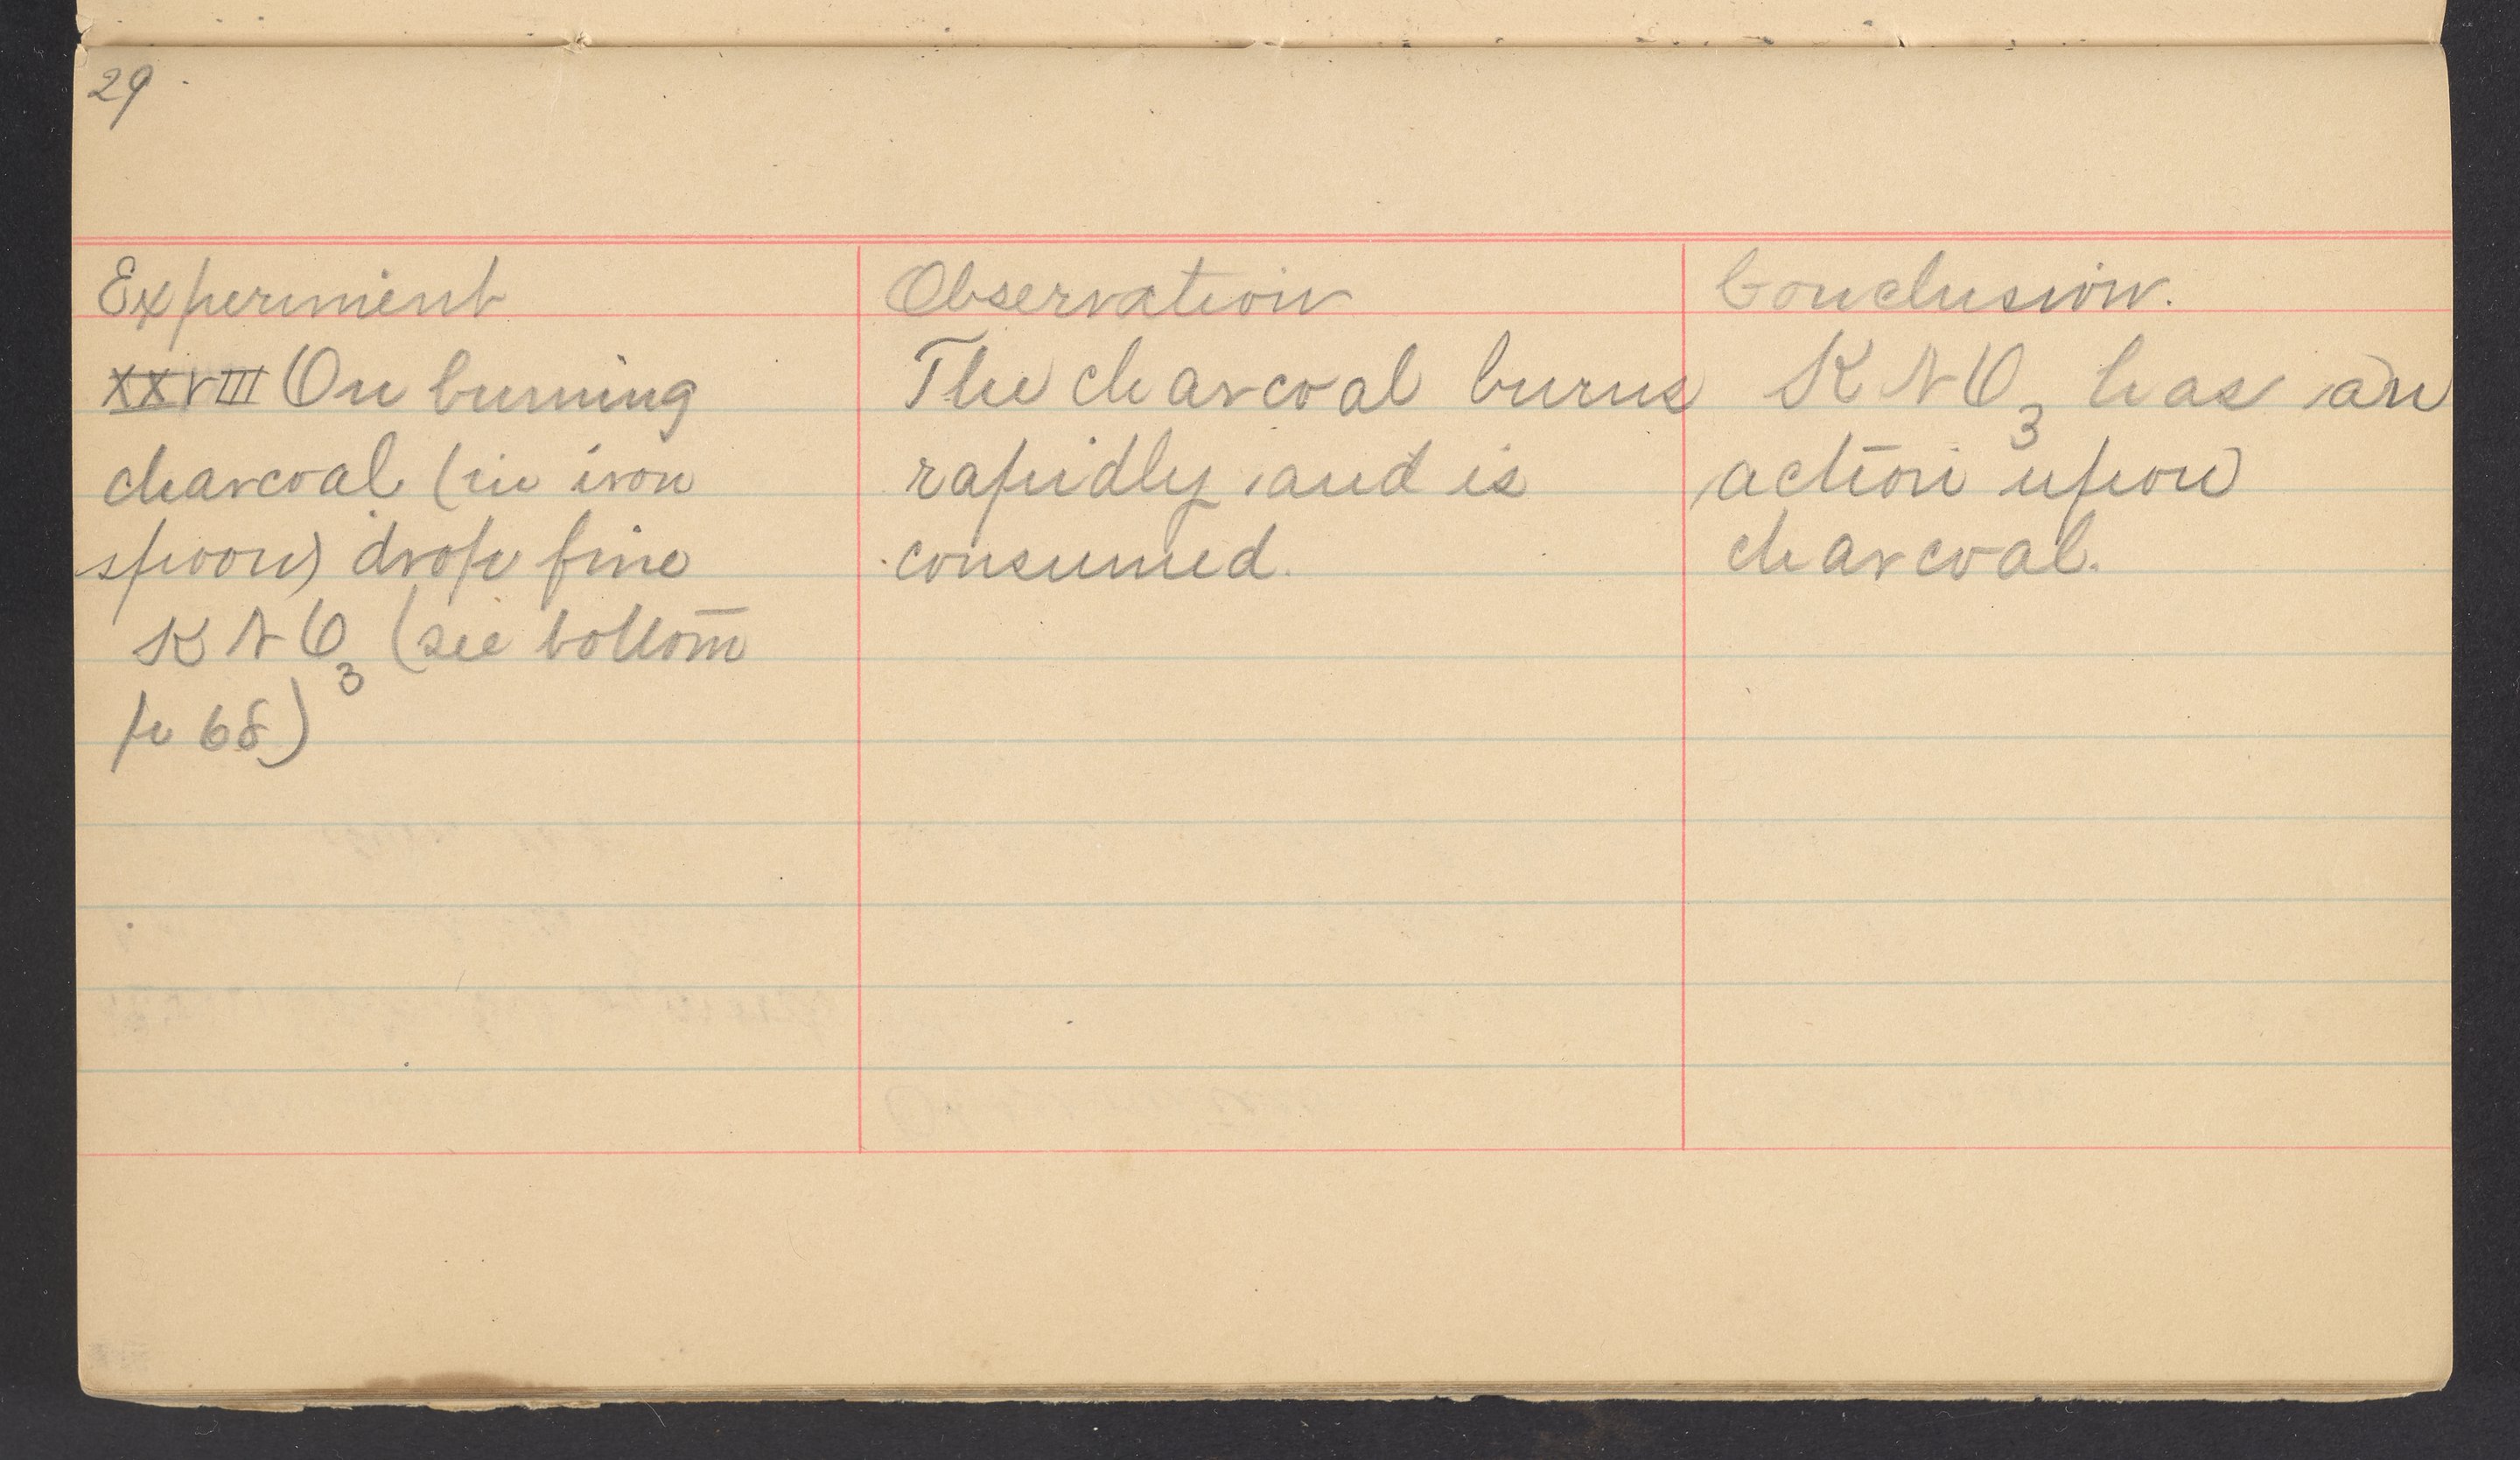 29
Experiment
XXVIII On burning
charcoal (in iron
spoon) drop fine
KNO3 (see bottom
p 68)
Observation
The charcoal burns
rapidly and is
consumed.
Conclusion.
KNO3 has an
action upon
charcoal.